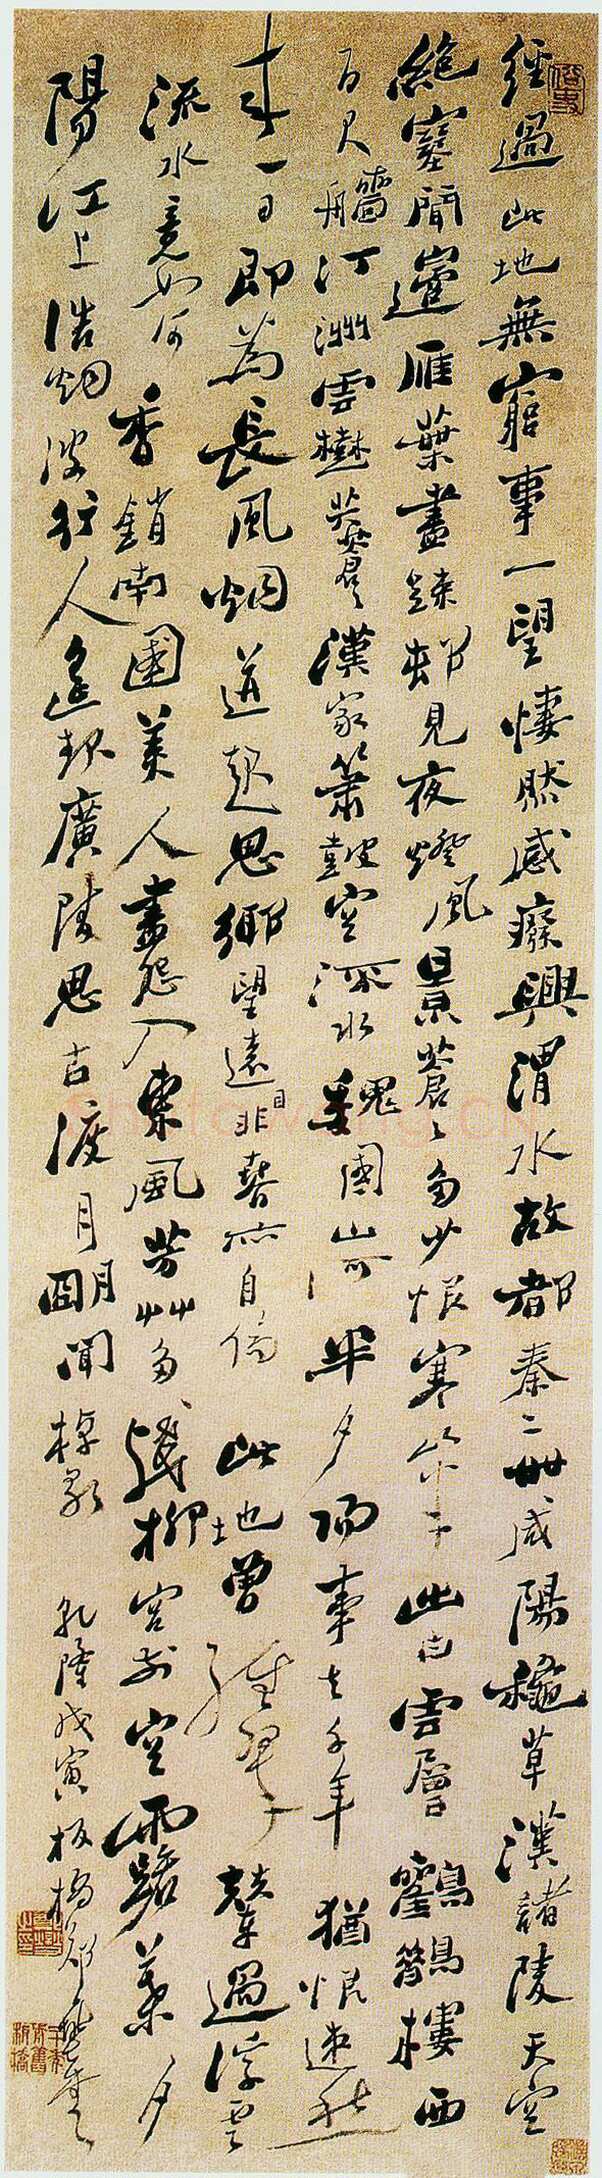 經過此地無窮事一望悽然感癈興渭水故都秦二世咸陽穐草漢諸陵天空
絶塞聞邊雁葉盡踈邨見夜燈風景蒼々多少恨寒山半出白雲層鸛鵲樓西
百尺艢汀洲雲樹共蒼々漢家簫鼓空流水魏國山河半夕陽事去千年猶恨速愁
來一日即為長風烟並起思鄉望遠目非春亦自傷此地曾經翠輦過浮雲
流水竟如何香銷南國美人盡怨入東風芳艸多殘柳宮前空露葉夕
陽江上浩烟波行人遙起廣陵思古渡月明聞棹歌乾隆戊寅板橋鄭燮書